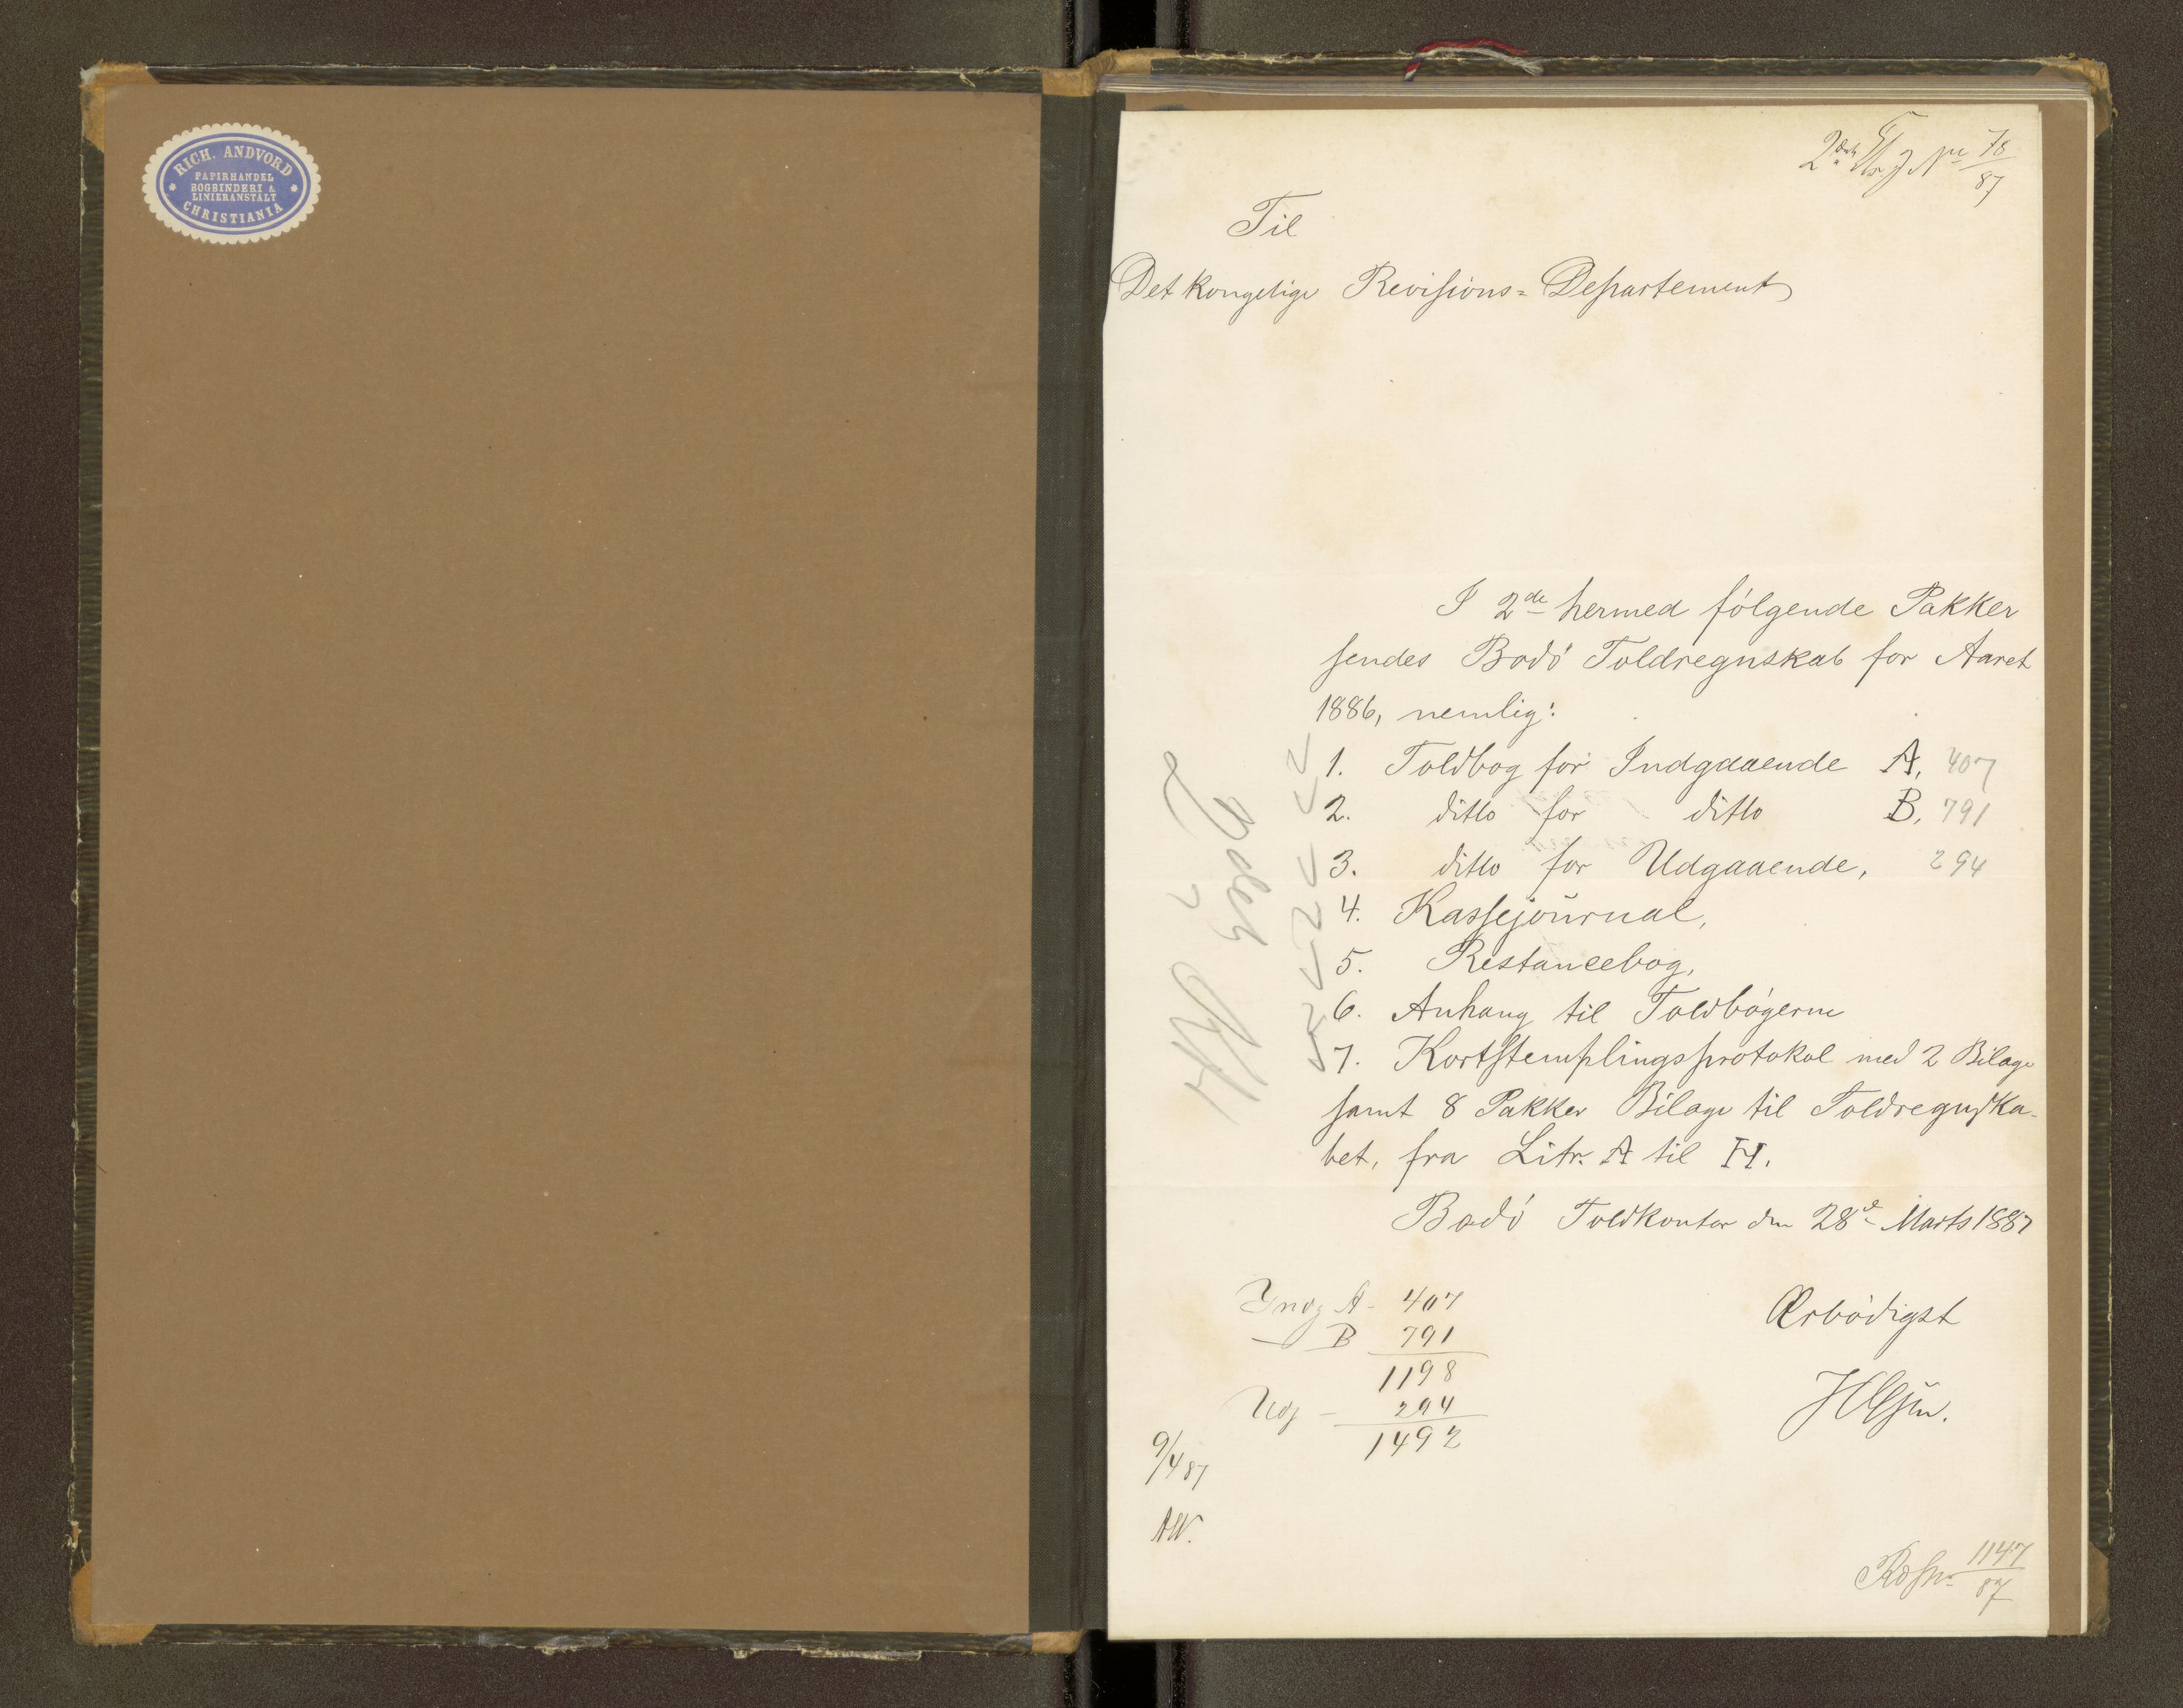 RICH. ANDVORD
PAPIRHANDEL
BOGBINDERI &
LINIERANSTALT
CHRISTIANIA
78
87
Til
Det kongelige Revisions=Departement
I 2de hermed følgende Pakker
sendes Bodö Toldregnskab for Aaret
1886, nemlig:
1. Toldbog for Indgaaende A, 407
2. ditto for ditto B, 791
3. ditto for Udgaaende, 294
4. Kassejournal,
5. Restancebog,
6. Anhang til Toldbøgerne
7. Kortstemplingsprotokol med 2 Bilage
samt 8 Pakker Bilage til Toldregnska-
bet, fra Litr. A til H.
Bodö Toldkontor den 28de Marts 1887
Ærbödigst
Indg A - 407
— B 791
1198
Udg — 294
1492
9/4 87
AW.
1147
87